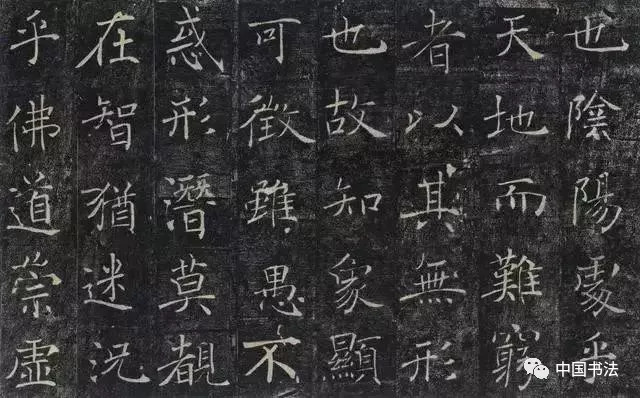 也陰陽處乎
天地而難窮
者以其無形
也故知象顯
可徵雖愚不
惑形潛莫覩
在智猶迷況
乎佛道崇虛
中国书法